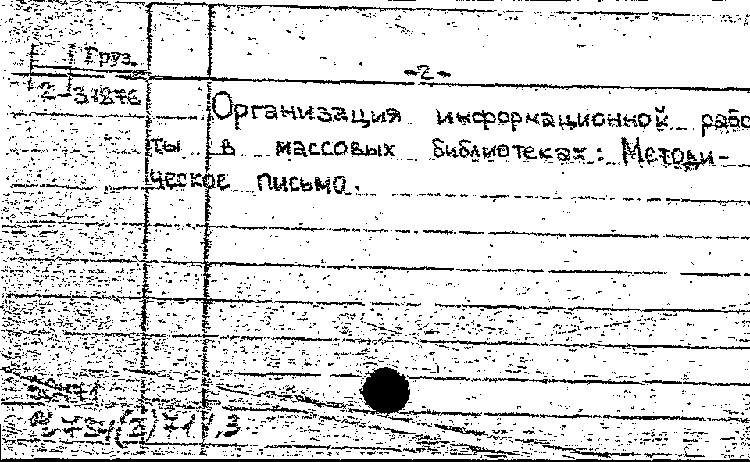 Груз.
-2-
2-31876
Организация информационной рабо
ты в массовых библиотеках: Методи-
ческое письмо.